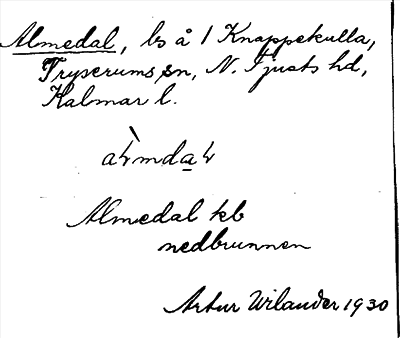 Almedal, ls å 1 Knappekulla,
Tryserums sn, N. Tjusts hd,
Kalmar l.
Almedal kb
nedbrunnen
Artur Wilander 1930